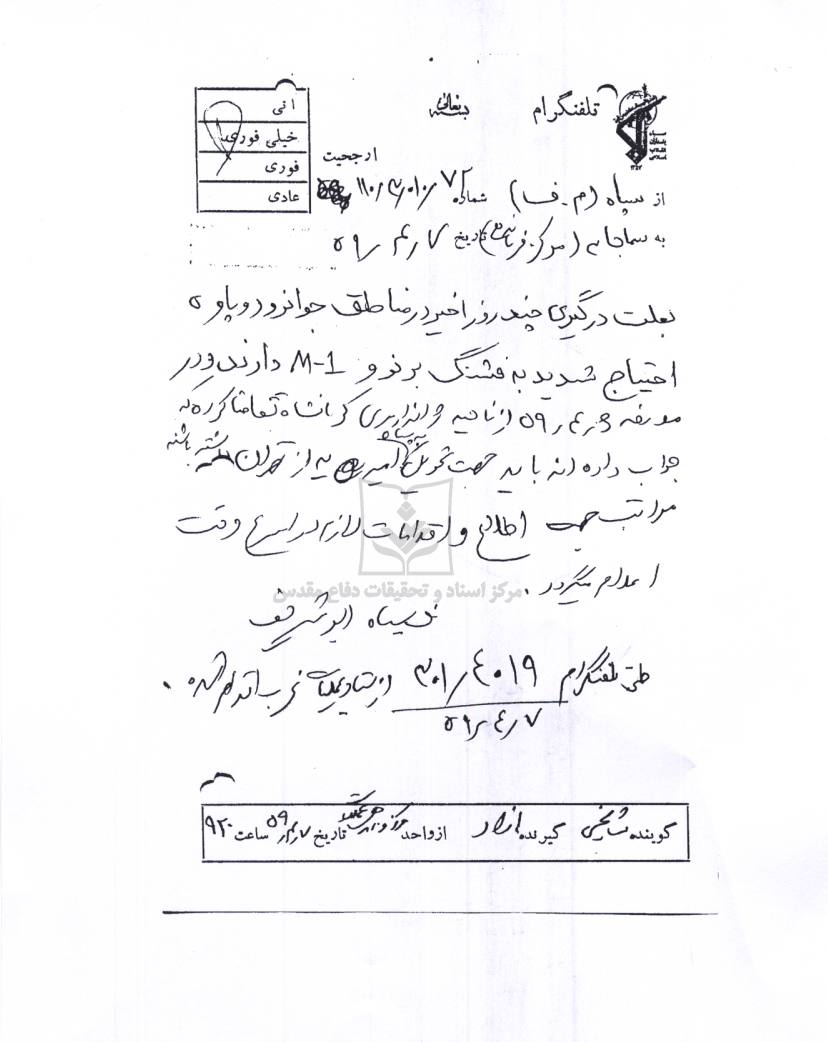 بسمه تعالی
تلفنگرام
ارجحیت
آنی
خیلی فوری
فوری
عادی
از سپاه (م.ف) شماره ۱۱۰/۳/۰۱۰/۷
به سماجا (مرکز فرماندهی) تاریخ ۵۹/۴/۷
بعلت درگیری چند روز اخیر در مناطق جوانرود و پاوه
احتیاج شدید به فشنگ برنو و M-1 دارند و در
مورخه ۵۹/۴/۳ از ناحیه ژاندارمری کرمانشاه تقاضا کرده که
جواب داده اند باید جهت تحویل به سپاه از تهران باشد
مراتب جهت اطلاع و اقدامات لازم در اسرع وقت
اعلام میگردد.
مرکز اسناد و تحقیقات دفاع مقدس
سپاه ابوشریف
طی تلفنگرام ۳۰۱/۴۰۱۹ از ستاد عملیات غرب اقدام شده.
۵۹/۴/۷
گوینده گیرنده از واحد تاریخ ۵۹/۴/۷ ساعت ۹۲۰